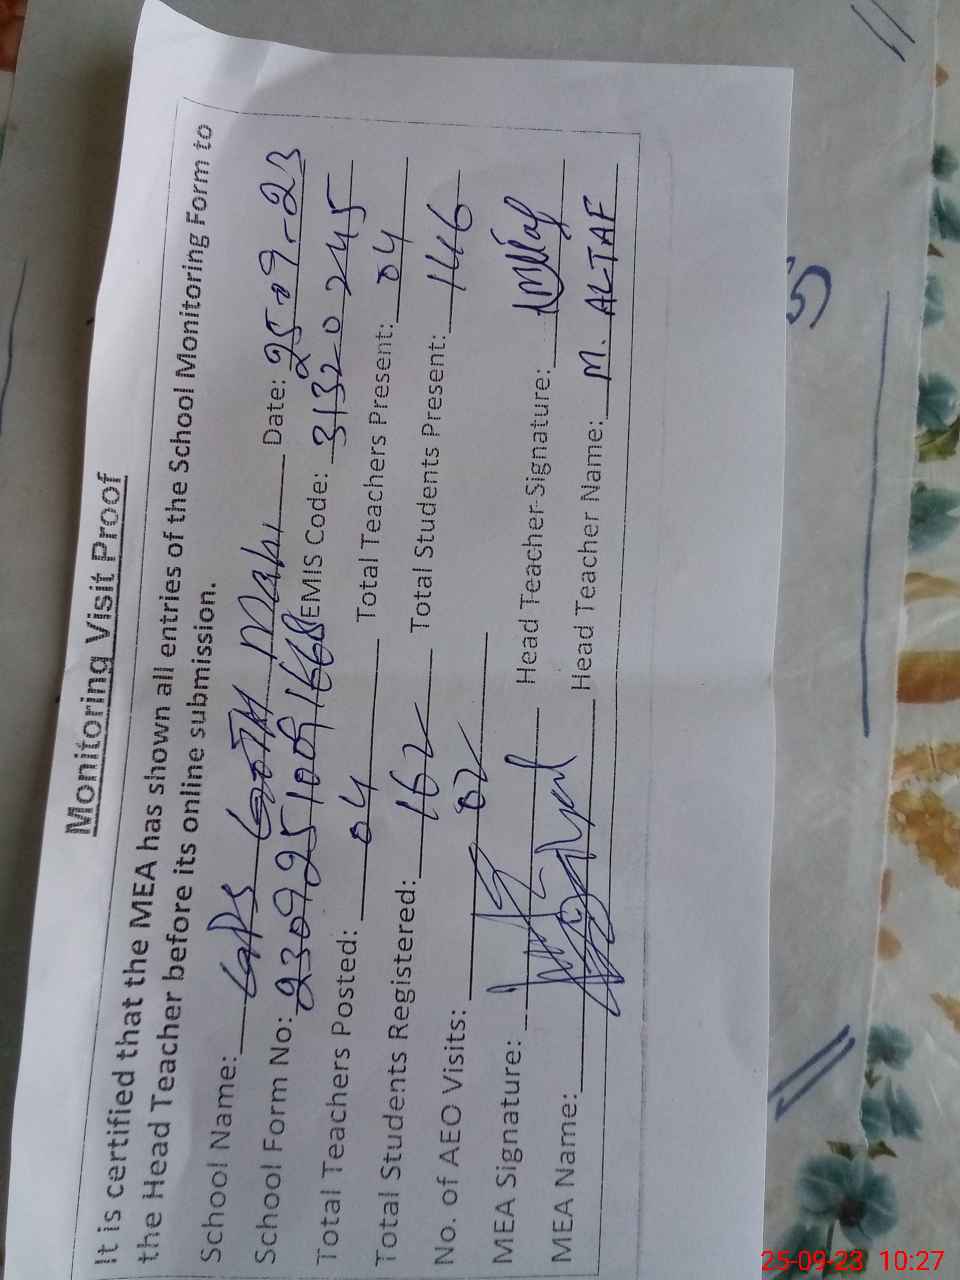 Monitoring Visit Proof
It is certified that the MEA has shown all entries of the School Monitoring Form to
the Head Teacher before its online submission.
School Name: GPS Date: 25-09-23
School Form No: EMIS Code: 31320245
Total Teachers Posted: 04 Total Teachers Present: 04
Total Students Registered: 162 Total Students Present: 146
No. of AEO Visits: 02
MEA Signature: Head Teacher Signature:
MEA Name: Head Teacher Name: M. ALTAF
25-09-23 10:27